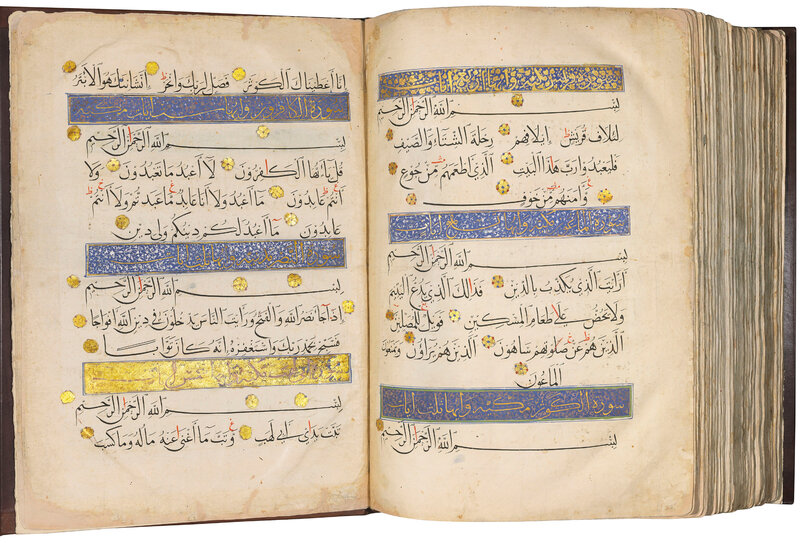 بسم الله الرحمن الرحيم
لئلاف قريش ايلافهم رحلة الشتاء والصيف
فليعبدوا رب هذا البيت الذي اطعمهم من جوع
وآمنهم من خوف
سورة الماعون مكية وايها سبع ايات
بسم الله الرحمن الرحيم
ارايت الذي يكذب بالدين فذلك الذي يدع اليتيم
ولا يحض على طعام المسكين فويل للمصلين
الذين هم عن صلوتهم ساهون الذين هم يراؤن ويمنعون
الماعون
سورة الكوثر مكية وايها ثلث ايات
بسم الله الرحمن الرحيم
انا اعطيناك الكوثر فصل لربك وانحر ان شانئك هو الابتر
سورة الكافرون وايها ست ايات
بسم الله الرحمن الرحيم
قل ياءيها الكفرون لا اعبد ما تعبدون ولا
انتم عابدون ما اعبد ولا انا عابد ما عبدتم ولا انتم
عابدون ما اعبد لكم دينكم ولي دين
سورة النصر مدنية وايها ثلث ايات
بسم الله الرحمن الرحيم
اذا جا نصر الله والفتح ورايت الناس يدخلون في دين الله افواجا
فسبح بحمد ربك واستغفره انه كان توابا
بسم الله الرحمن الرحيم
تبت يدا ابي لهب وتب ما اغنى عنه ماله وما كسب